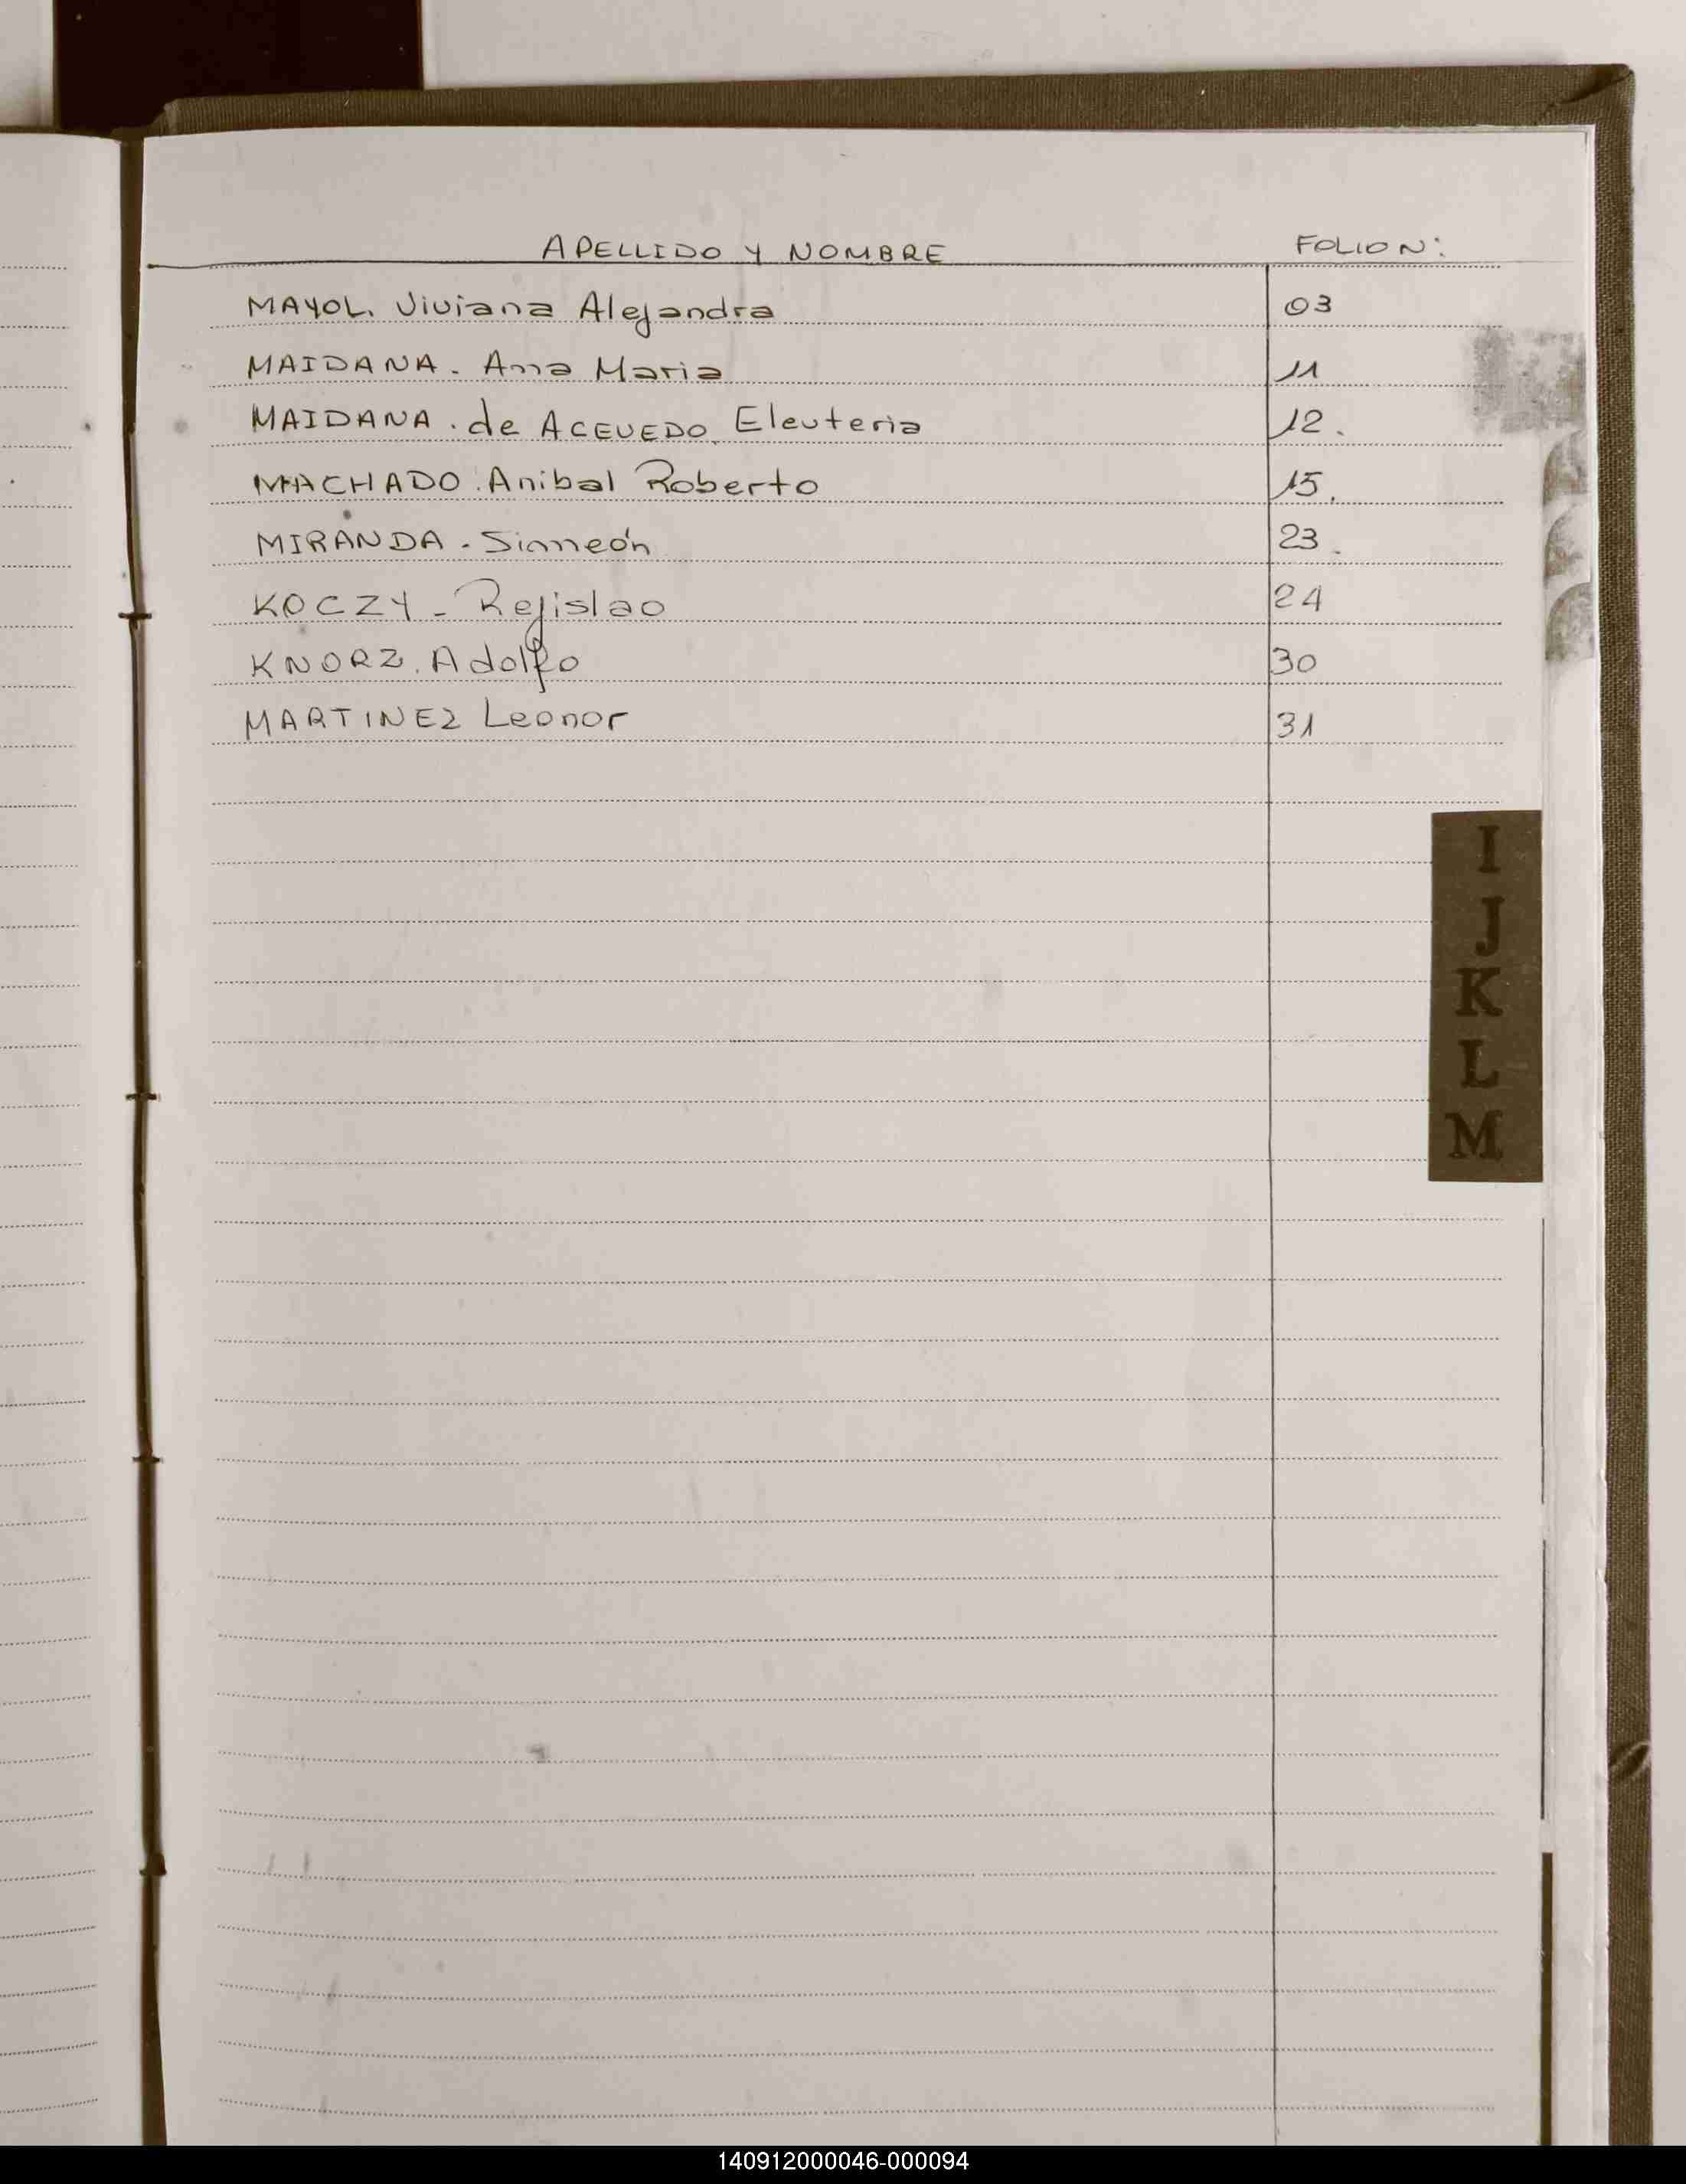 APELLIDO Y NOMBRE FOLIO N:
MAYOL. Viviana Alejandra 03
MAIDANA. Ana Maria 11
MAIDANA. de ACEVEDO. Eleuteria 12.
MACHADO. Anibal Roberto 15.
MIRANDA - Simeón 23.
KOCZY - Rejislao 24
KNORZ. Adolfo 30
MARTINEZ Leonor 31
I
J
K
L
M
140912000046-000094